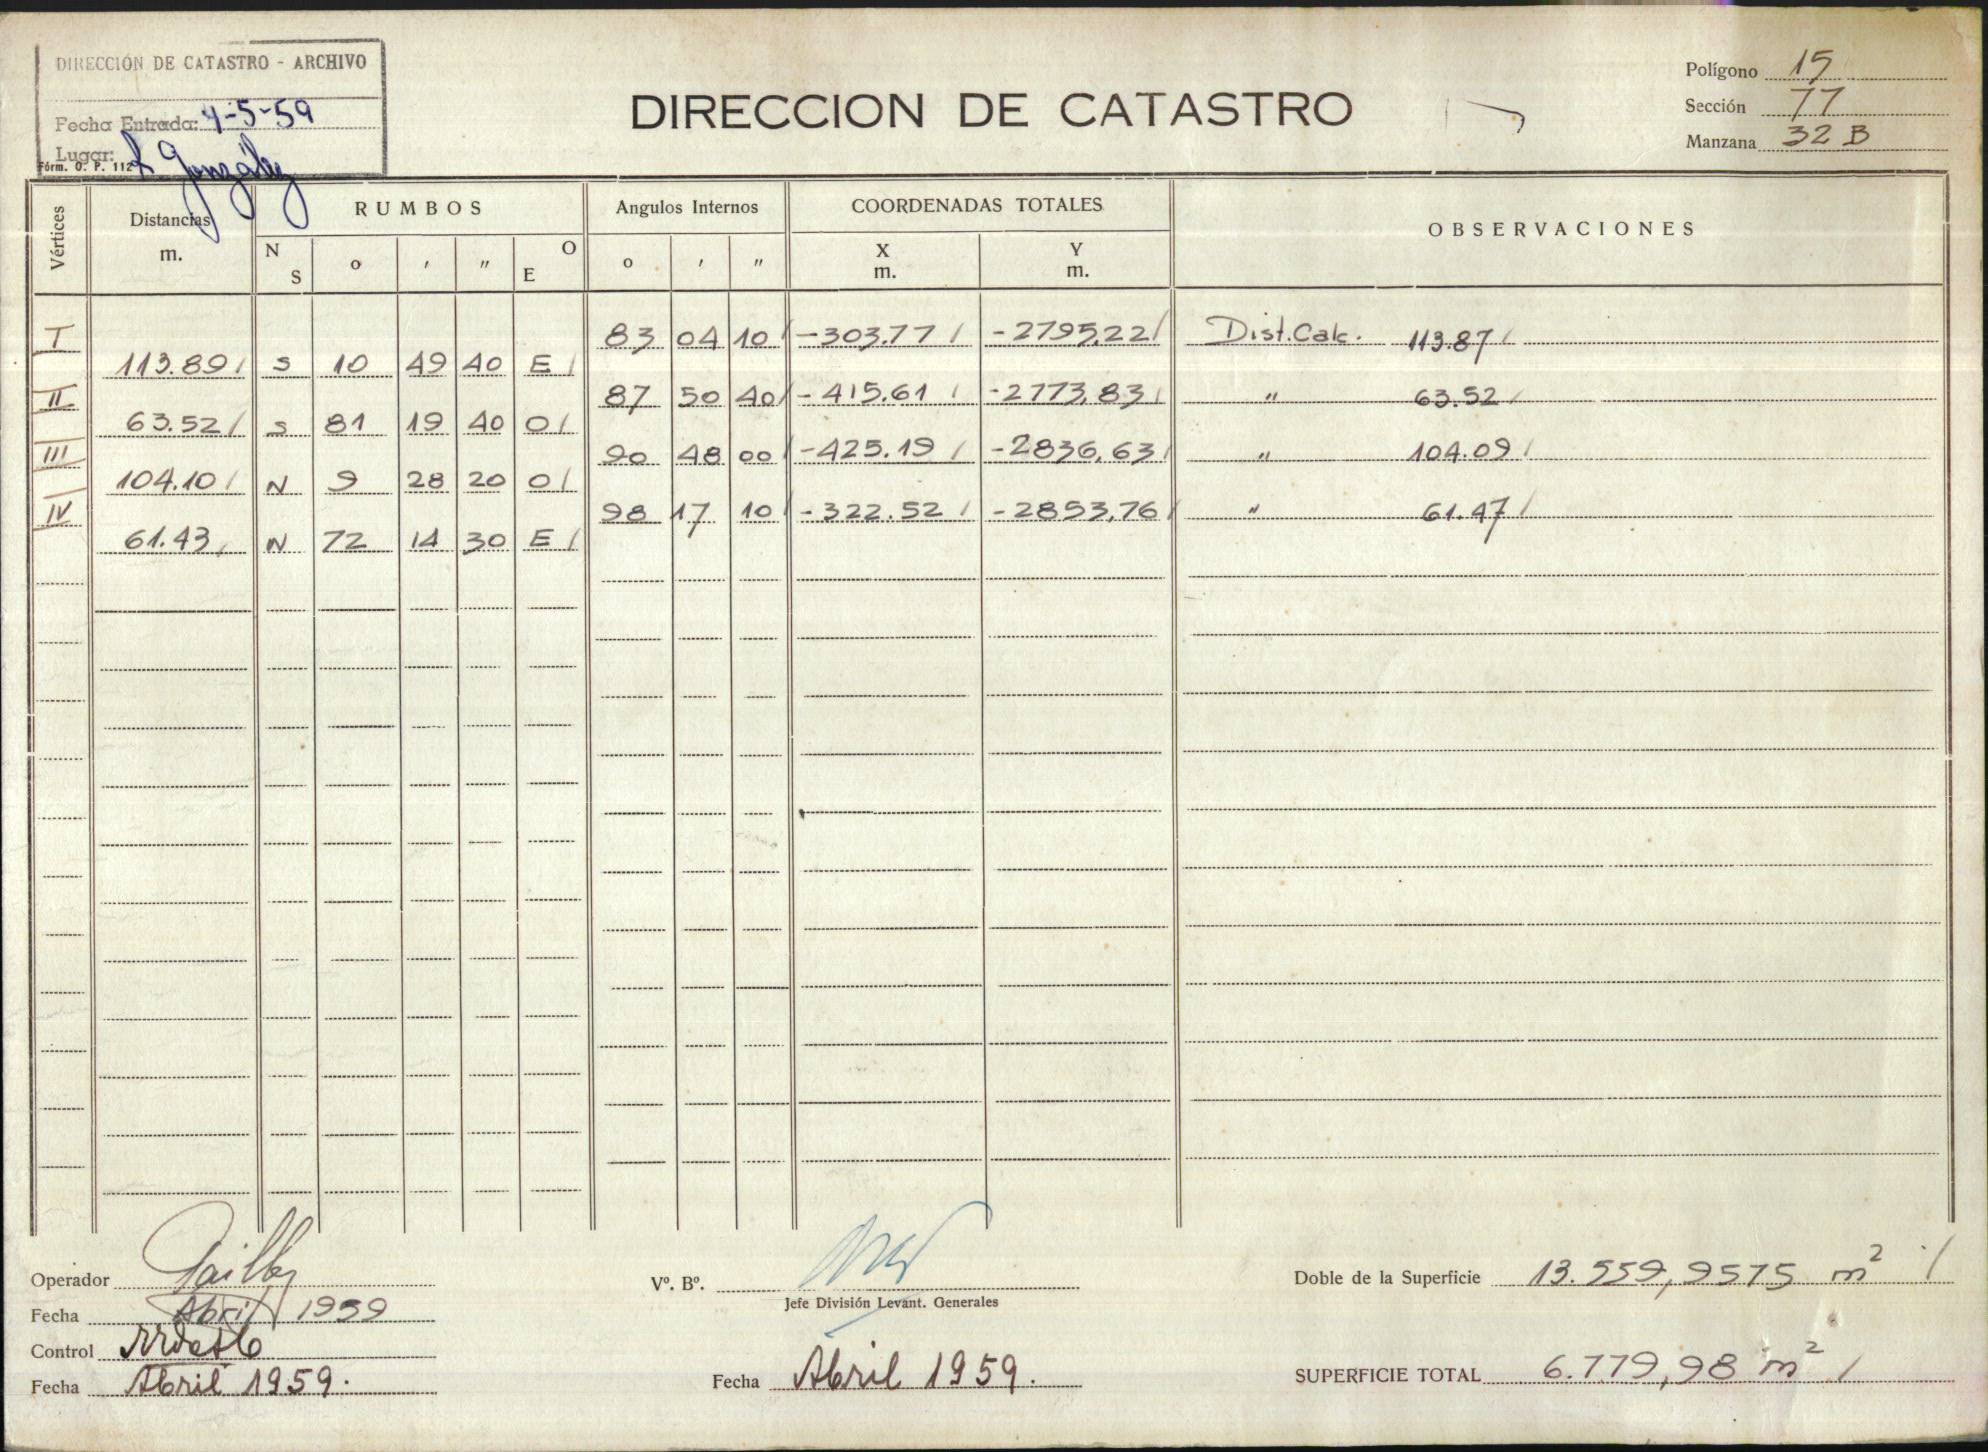 DIRECCIÓN DE CATASTRO - ARCHIVO
Fecha Entrada: 4-5-59
Lugar:
Fórm. O. P. 112
González
DIRECCION DE CATASTRO
Polígono 15
Sección 77
Manzana 32 B
Vértices Distancias m. RUMBOS Angulos Internos COORDENADAS TOTALES OBSERVACIONES
N S o ′ ″ O E o ′ ″ X m. Y m.
I 83 04 10 -303.77 -2795,22 Dist. Calc. 113.87
113.89 S 10 49 40 E
II 87 50 40 -415.61 -2773,83 " 63.52
63.52 S 81 19 40 O
III 90 48 00 -425.19 -2836,63 " 104.09
104.10 N 9 28 20 O
IV 98 17 10 -322.52 -2853,76 " 61.47
61.43 N 72 14 30 E
Operador
Fecha Abril 1959
Control
Fecha Abril 1959.
Vº. Bº.
Jefe División Levant. Generales
Fecha Abril 1959.
Doble de la Superficie 13.559,9575 m²
SUPERFICIE TOTAL 6.779,98 m²